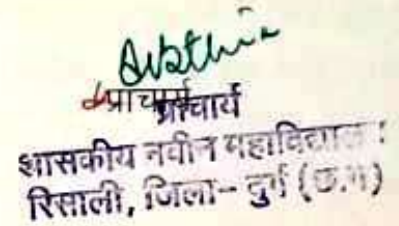 प्राचार्य
प्राचार्य
शासकीय नवीन महाविद्यालय
रिसाली, जिला- दुर्ग (छ.ग)